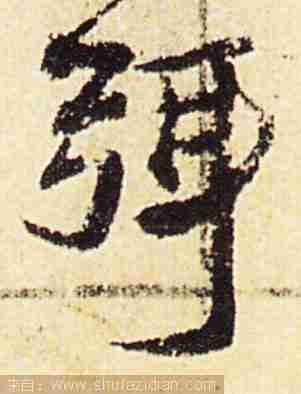 弭
来自：www.shufazidian.com